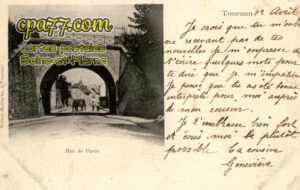 cpa77.com
cartes postales
Seine-et-Marne
Tournan
12 Avril
Je crois que tu m
ne recevant pas de tes
nouvelles je m'empresse
d'écrire quelques mots pour
te dire que je m'impatiente
Je pense que tu as été bonne
interprète pour moi auprès
de mon cousin.
Je t'embrasse bien fort
et écris moi le plutôt
possible Ta cousine
Geneviève
Rue de Paris